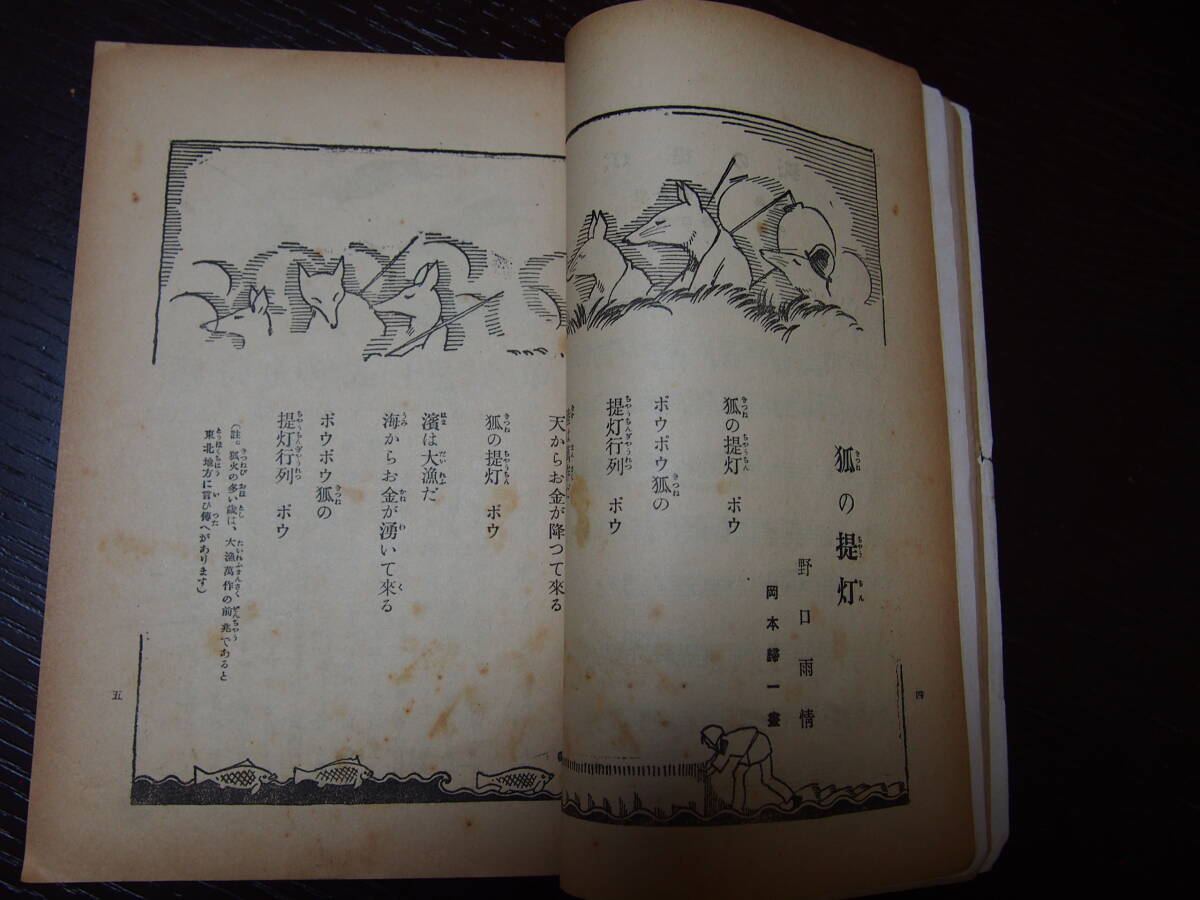 狐の提灯
野口雨情
岡本歸一畫
狐の提灯 ボウ
ボウボウ狐の
提灯行列 ボウ
四
天からお金が降つて來る
狐の提灯 ボウ
濱は大漁だ
海からお金が湧いて來る
ボウボウ狐の
提灯行列 ボウ
(註。狐火の多い歳は、大漁萬作の前兆であると
東北地方に言ひ傳へがあります)
五